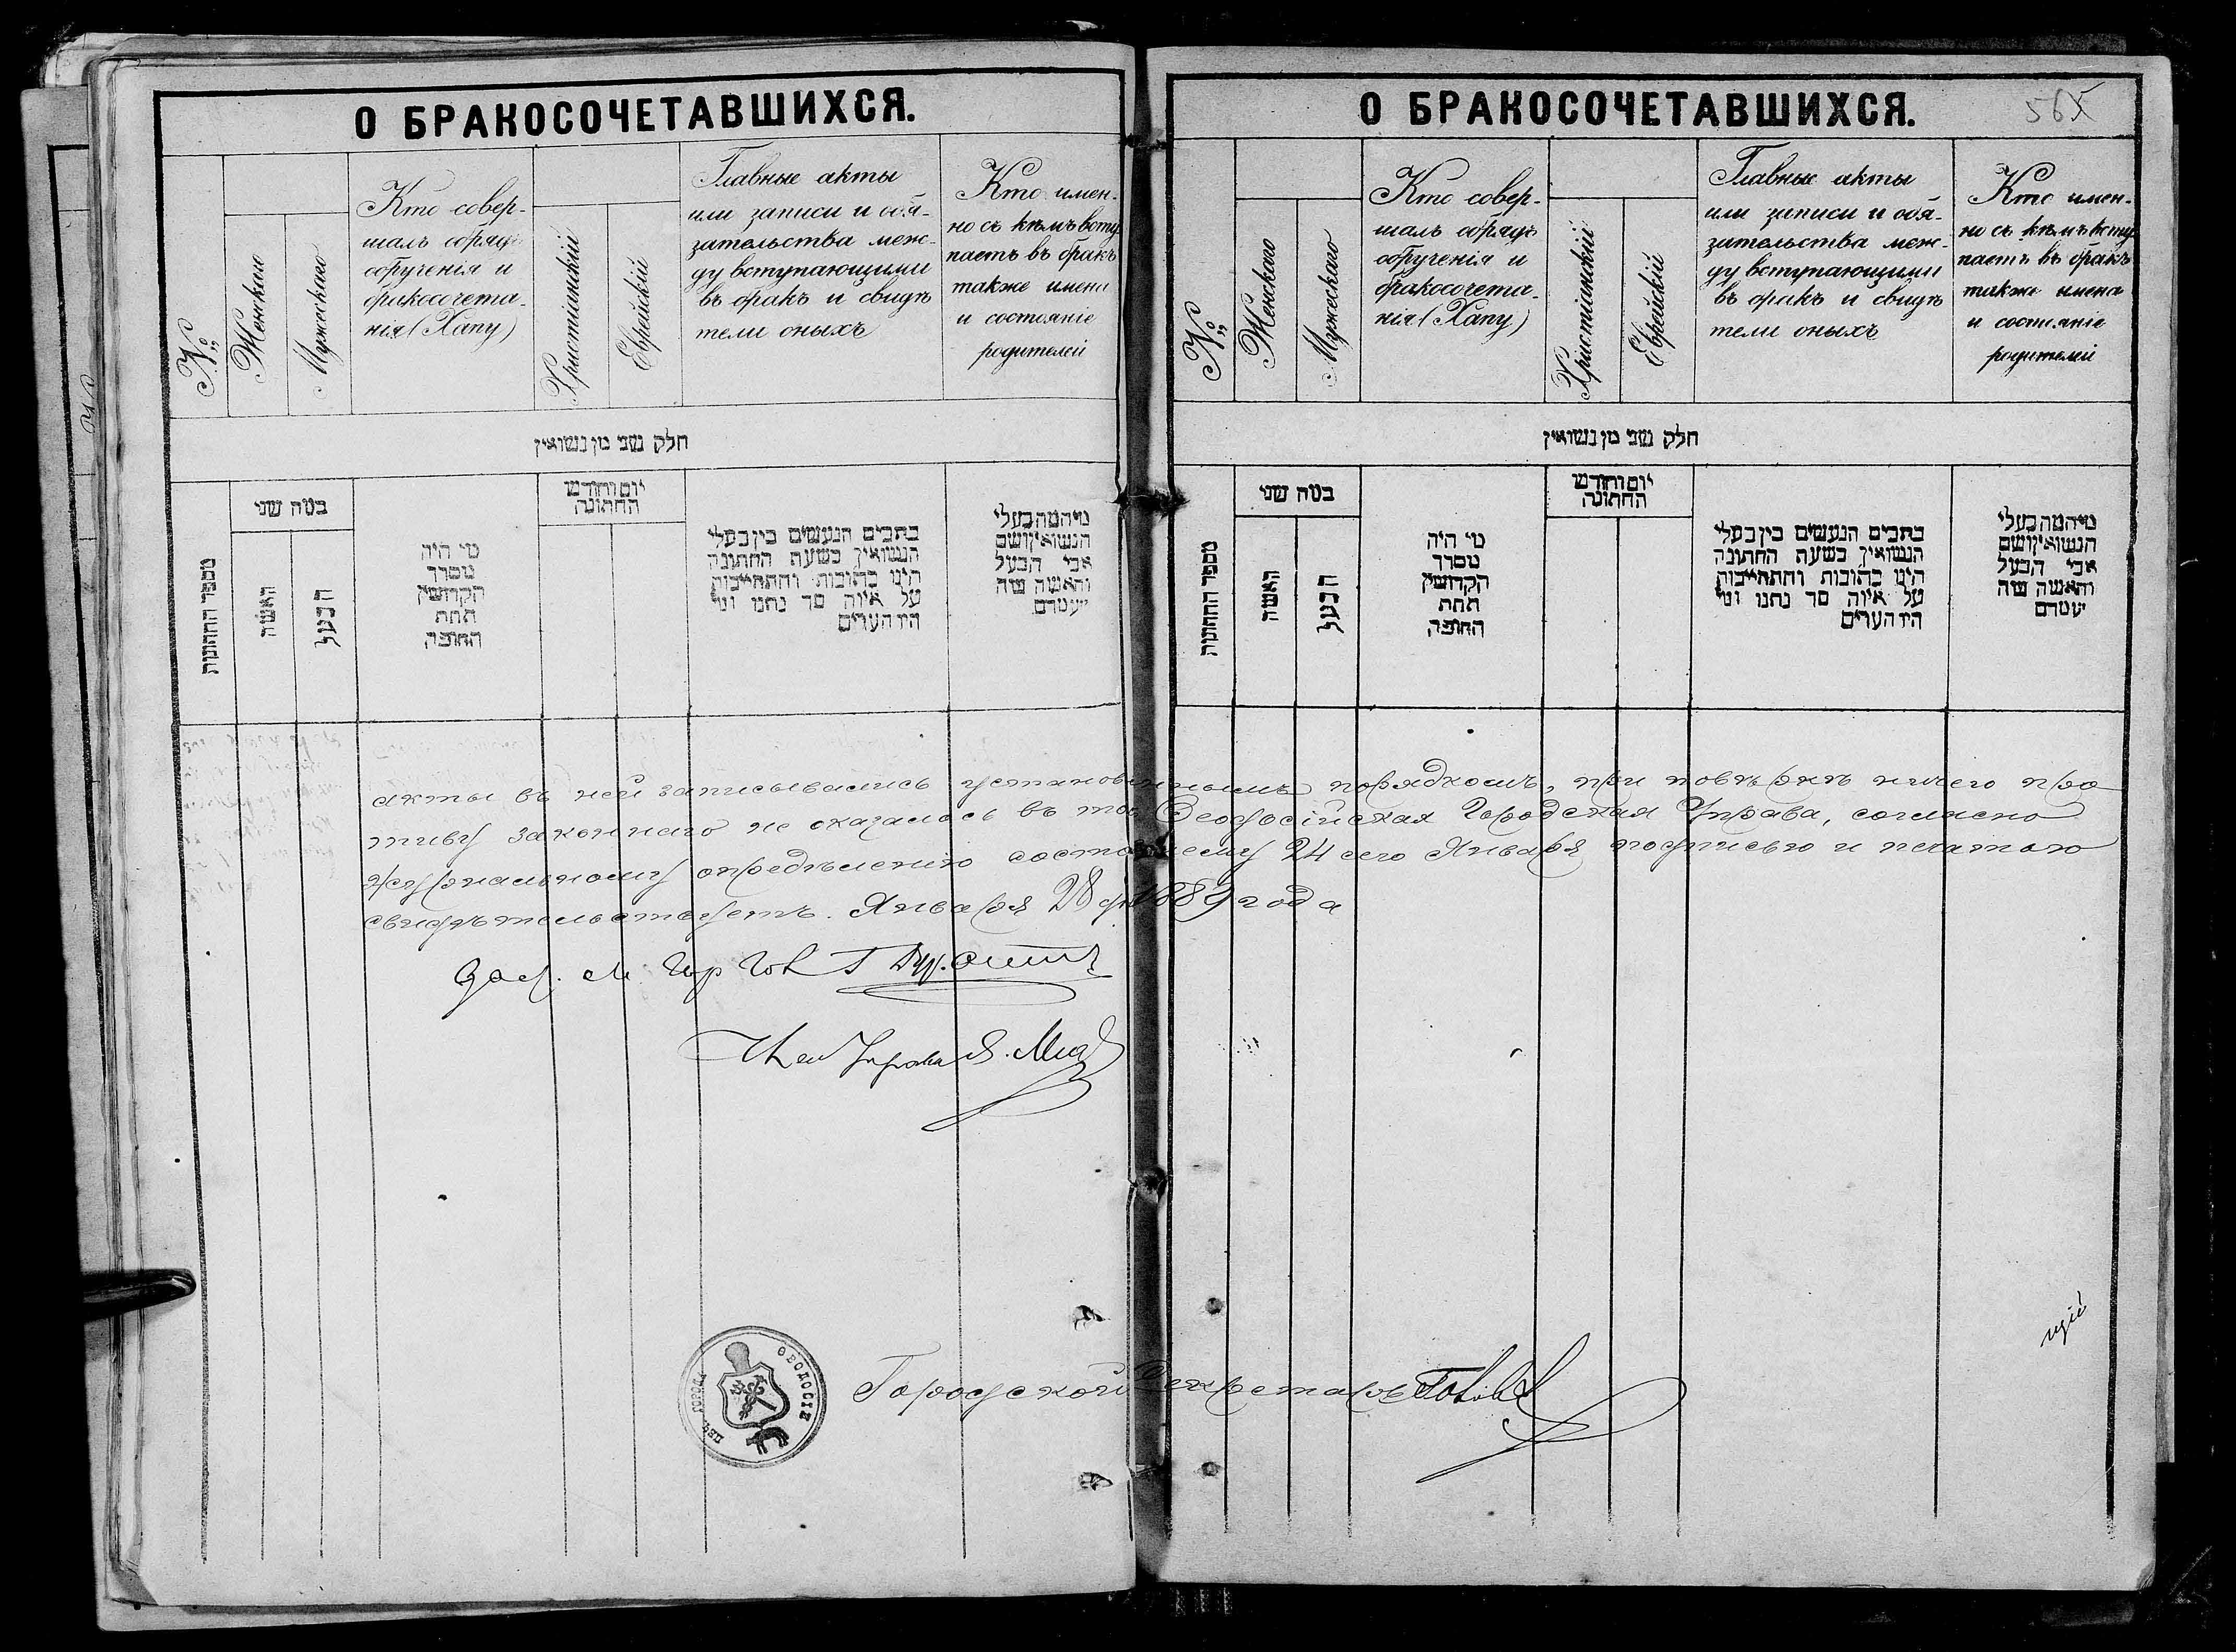 О БРАКОСОЧЕТАВШИХСЯ.
№
Женскаго
Мужескаго
Кто совер-
шалъ обрядъ
обрученія и
бракосочета-
нія (Хапу)
Христіанскій
Еврейскій
Главные акты
или записи и обя-
зательства меж-
ду вступающими
въ бракъ и свидѣ
тели оныхъ
Кто имен-
но съ кѣмъ всту
паетъ въ бракъ
также имена
и состояніе
родителей
חלק שני מן נשואין
מספר החתונות
כמה שני
האשה
הבעל
מי היה
מסדר
הקדושין
תחת
החופה
יום וחודש
החתונה
כתבים הנעשים בין בעלי
הנשואין בשעת החתונה
היינו כתובות והתחייבות
על איזה סך נתנו ומי
היו העדים
מי המה בעלי
הנשואין ושם
אבי הבעל
והאשה ומה
מעמדם
О БРАКОСОЧЕТАВШИХСЯ.
56
№
Женскаго
Мужескаго
Кто совер-
шалъ обрядъ
обрученія и
бракосочета-
нія (Хапу)
Христіанскій
Еврейскій
Главные акты
или записи и обя-
зательства меж-
ду вступающими
въ бракъ и свидѣ
тели оныхъ
Кто имен-
но съ кѣмъ всту
паетъ въ бракъ
также имена
и состояніе
родителей
חלק שני מן נשואין
מספר החתונות
כמה שני
האשה
הבעל
מי היה
מסדר
הקדושין
תחת
החופה
יום וחודש
החתונה
כתבים הנעשים בין בעלי
הנשואין בשעת החתונה
היינו כתובות והתחייבות
על איזה סך נתנו ומי
היו העדים
מי המה בעלי
הנשואין ושם
אבי הבעל
והאשה ומה
מעמדם
акты въ ней записывались установленнымъ порядкомъ, при повѣркѣ ничего про
тиву законнаго не оказалось въ томъ Ѳеодосійская Городская Управа, согласно
журнальному опредѣленію состоявшему 24 сего Января подписью и печатью
свидѣтельствуетъ. Января 28 дня 1889 года
Гор Гол
Член Управы
ПЕЧ. ГОРОДА ѲЕОДОСІИ
Городской Секретарь
щій